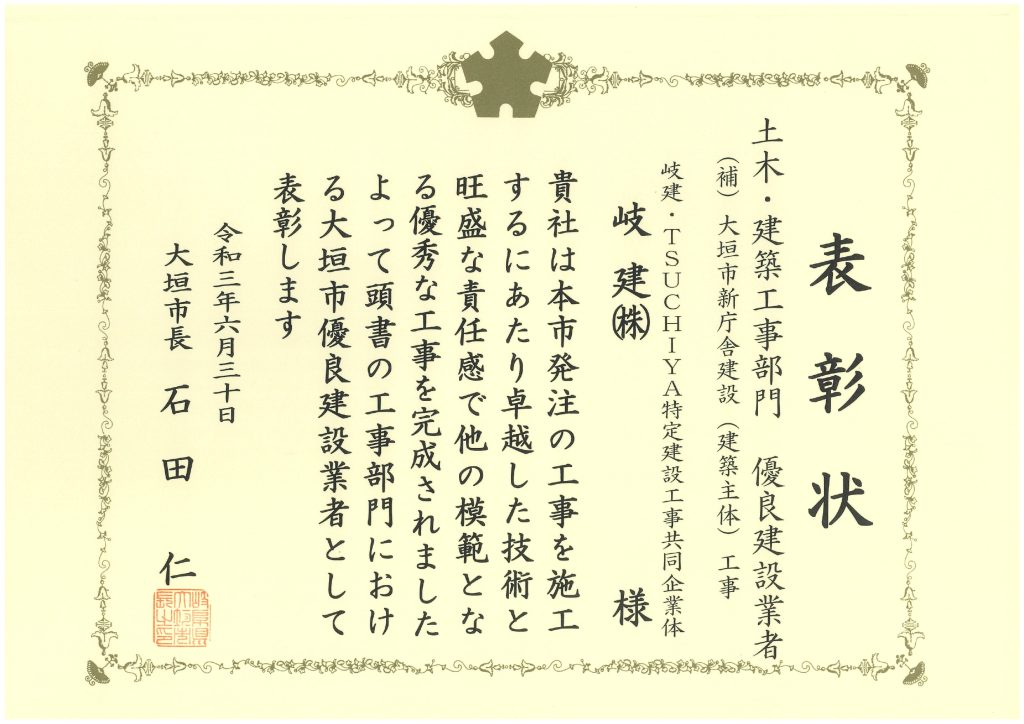 表彰状
土木・建築工事部門　優良建設業者
（補）大垣市新庁舎建設（建築主体）工事
岐建・TSUCHIYA特定建設工事共同企業体
岐建㈱　様
貴社は本市発注の工事を施工
するにあたり卓越した技術と
旺盛な責任感で他の模範とな
る優秀な工事を完成されました
よって頭書の工事部門におけ
る大垣市優良建設業者として
表彰します
令和三年六月三十日
大垣市長　石田　仁